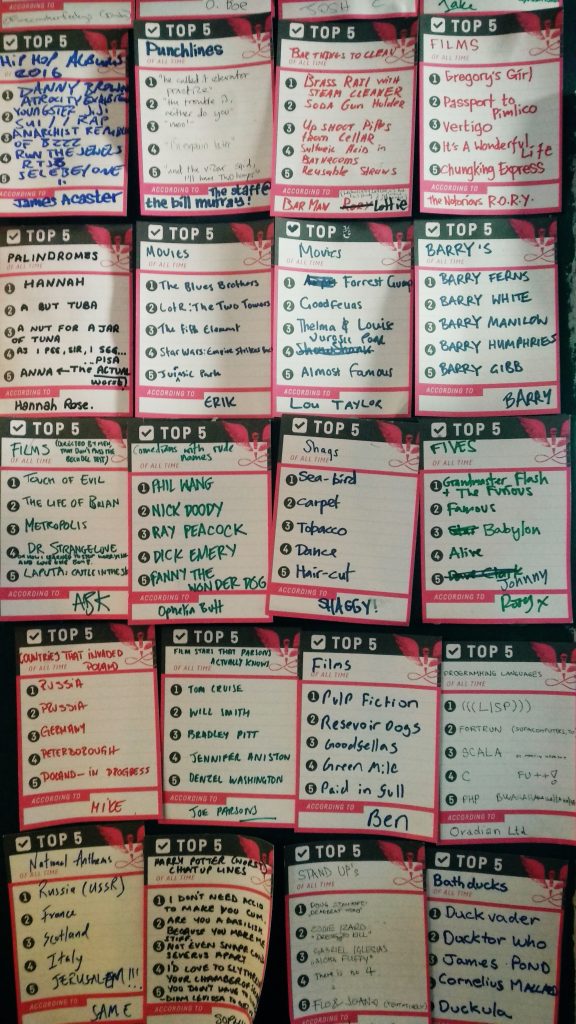 ACCORDING TO
O. Doe
JOSH
Jake
TOP 5
HIP HOP ALBUMS
2016
1 DANNY BROWN
ATROCITY EXHIBITION
2
3 ANARCHIST REPUBLIC
OF BZZZ
4 RUN THE JEWELS
RTJ3
5 SELEBEYONE
ACCORDING TO
James Acaster
TOP 5
Punchlines
OF ALL TIME
1 "he called it elevator
practize"
2
3
4
5
ACCORDING TO
The staff @
the bill murray!
TOP 5
BAR THINGS TO CLEAN
OF ALL TIME
1 BRASS RAIL WITH
STEAM CLEANER
2 SODA GUN HOLDER
3 UP SHOOT PIPES
FROM CELLAR
4 Sulfuric Acid in
BATHROOMS
5 REUSABLE STRAWS
ACCORDING TO
BAR MAN Rory Lottie
TOP 5
FILMS
OF ALL TIME
1 Gregory's Girl
2 Passport to
Pimlico
3 Vertigo
4 It's A Wonderful
Life
5 Chungking Express
ACCORDING TO
The Notorious R.O.R.Y.
TOP 5
PALINDROMES
OF ALL TIME
1 HANNAH
2 A BUT TUBA
3 A NUT FOR A JAR
OF TUNA
4 AS I PEE, SIR, I SEE...
...PISA
5 ANNA ← THE ACTUAL
WORD)
ACCORDING TO
Hannah Rose.
TOP 5
MOVIES
OF ALL TIME
1 The Blues Brothers
2 LotR: The Two Towers
3 The Fifth Element
4 Star Wars: Empire Strikes Back
5 Jurassic Park
ACCORDING TO
ERIK
TOP 5
Movies
OF ALL TIME
1 Forrest Gump
2 Goodfellas
3 Thelma & Louise
4 Jurassic Park
Shawshank
5 Almost Famous
ACCORDING TO
LOU TAYLOR
TOP 5
BARRY'S
OF ALL TIME
1 BARRY FERNS
2 BARRY WHITE
3 BARRY MANILOW
4 BARRY HUMPHRIES
5 BARRY GIBB
ACCORDING TO
BARRY
TOP 5
FILMS (DIRECTED BY MEN,
THAT DON'T PASS THE
BECHDEL TEST)
OF ALL TIME
1 TOUCH OF EVIL
2 THE LIFE OF BRIAN
3 METROPOLIS
4 DR STRANGELOVE
OR HOW I LEARNED TO STOP WORRYING
AND LOVE THE BOMB.
5 LAPUTA: CASTLE IN THE SKY
ACCORDING TO
TOP 5
Comedians with rude
names
OF ALL TIME
1 PHIL WANG
2 NICK DOODY
3 RAY PEACOCK
4 DICK EMERY
5 FANNY THE
WONDER DOG
ACCORDING TO
Ophelia Butt
TOP 5
Shags
OF ALL TIME
1 Sea-bird
2 Carpet
3 Tobacco
4 Dance
5 Hair-cut
ACCORDING TO
SHAGGY!
TOP 5
FIVES
OF ALL TIME
1 Grandmaster Flash
+ The Furious
2 Famous
3 Star Babylon
4 Alive
5 Dave Clark
Johnny
ACCORDING TO
Rory x
TOP 5
COUNTRIES THAT INVADED
POLAND
OF ALL TIME
1 RUSSIA
2 PRUSSIA
3 GERMANY
4 PETERBOROUGH
5 POLAND - IN PROGRESS
ACCORDING TO
MIKE
TOP 5
FILM STARS THAT PARSONS
ACTUALLY KNOWS
OF ALL TIME
1 TOM CRUISE
2 WILL SMITH
3 BRADLEY PITT
4 JENNIFER ANISTON
5 DENZEL WASHINGTON
ACCORDING TO
JOE PARSONS
TOP 5
Films
OF ALL TIME
1 Pulp Fiction
2 Resevoir Dogs
3 Goodfellas
4 Green Mile
5 Paid in full
ACCORDING TO
Ben
TOP 5
PROGRAMMING LANGUAGES
OF ALL TIME
1 (((LISP)))
2 FORTRUN
3 SCALA
4 C FU++
5 PHP
ACCORDING TO
Ovadian Ltd
TOP 5
National Anthems
OF ALL TIME
1 Russia (USSR)
2 France
3 Scotland
4 Italy
5 JERUSALEM!!!
ACCORDING TO
SAME
TOP 5
HARRY POTTER (WORST)
CHATUP LINES
OF ALL TIME
1 I DON'T NEED ACCIO
TO MAKE YOU CUM.
2 ARE YOU A BASILISK
BECAUSE YOU MAKE ME
STIFF
3 NOT EVEN SNAPE COULD
SEVERUS APART
4 I'D LOVE TO SLYTHER
YOUR CHAMBER OF
5 YOU DON'T HAVE
ACCORDING TO
TOP 5
STAND UP's
OF ALL TIME
1 DOUG STANHOPE
2 EDDIE IZZARD
"DRESS TO KILL"
3 GABRIEL IGLESIAS
"ALOHA FLUFFY"
4 There is no 4
5 FLO & JOAN
ACCORDING TO
TOP 5
Bath ducks
OF ALL TIME
1 Duck vader
2 Ducktor Who
3 James POND
4 Cornelius MALLARD
5 Duckula
ACCORDING TO